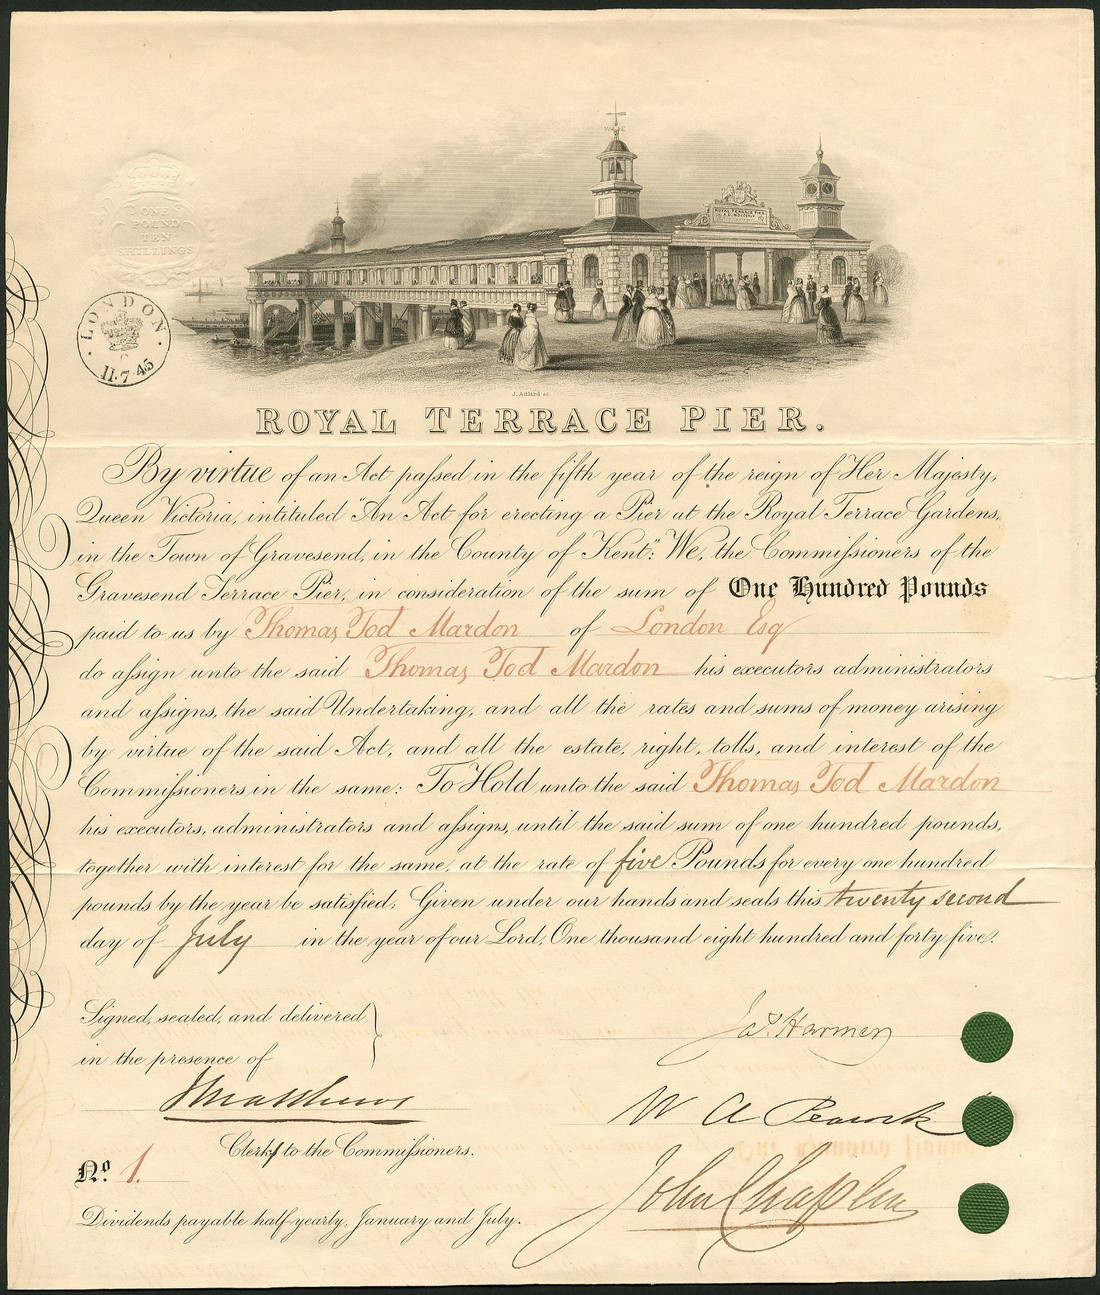 ONE
POUND
TEN
SHILLINGS
LONDON
C
11·7·45
ROYAL TERRACE PIER
J. Adlard sc.
ROYAL TERRACE PIER.
By virtue of an Act passed in the fifth year of the reign of Her Majesty,
Queen Victoria, intituled "An Act for erecting a Pier at the Royal Terrace Gardens,
in the Town of Gravesend, in the County of Kent": We, the Commissioners of the
Gravesend Terrace Pier, in consideration of the sum of One Hundred Pounds
paid to us by Thomas Tod Mardon of London Esq
do assign unto the said Thomas Tod Mardon his executors administrators
and assigns, the said Undertaking, and all the rates and sums of money arising
by virtue of the said Act, and all the estate, right, tolls, and interest of the
Commissioners in the same: To Hold unto the said Thomas Tod Mardon
his executors, administrators and assigns, until the said sum of one hundred pounds,
together with interest for the same, at the rate of five Pounds for every one hundred
pounds by the year be satisfied; Given under our hands and seals this twenty second
day of July in the year of our Lord, One thousand eight hundred and forty five.
Signed, sealed, and delivered
in the presence of
Jas. Harmer
J Matthews
W A Peacock
Clerk to the Commissioners.
No. 1.
John Chaplin
Dividends payable half-yearly, January and July.